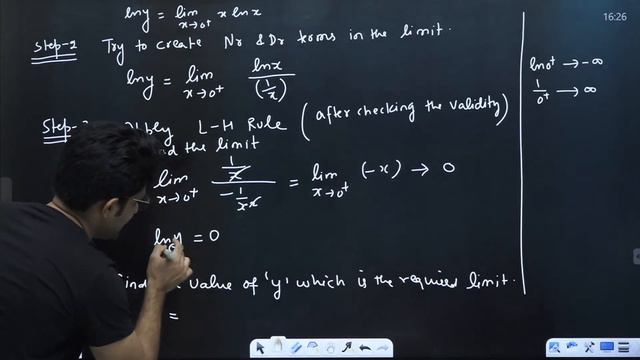 ln y = lim x→0⁺ x ln x
Step-2 Try to create Nr & Dr terms in the limit.
ln y = lim x→0⁺ ln x / (1/x)
L-H Rule (after checking the validity)
the limit
lim x→0⁺ (1/x) / (-1/x x) = lim x→0⁺ (-x) → 0
ln y = 0
value of 'y' which is the required limit.
=
ln 0⁺ → -∞
1/0⁺ → ∞
16:26